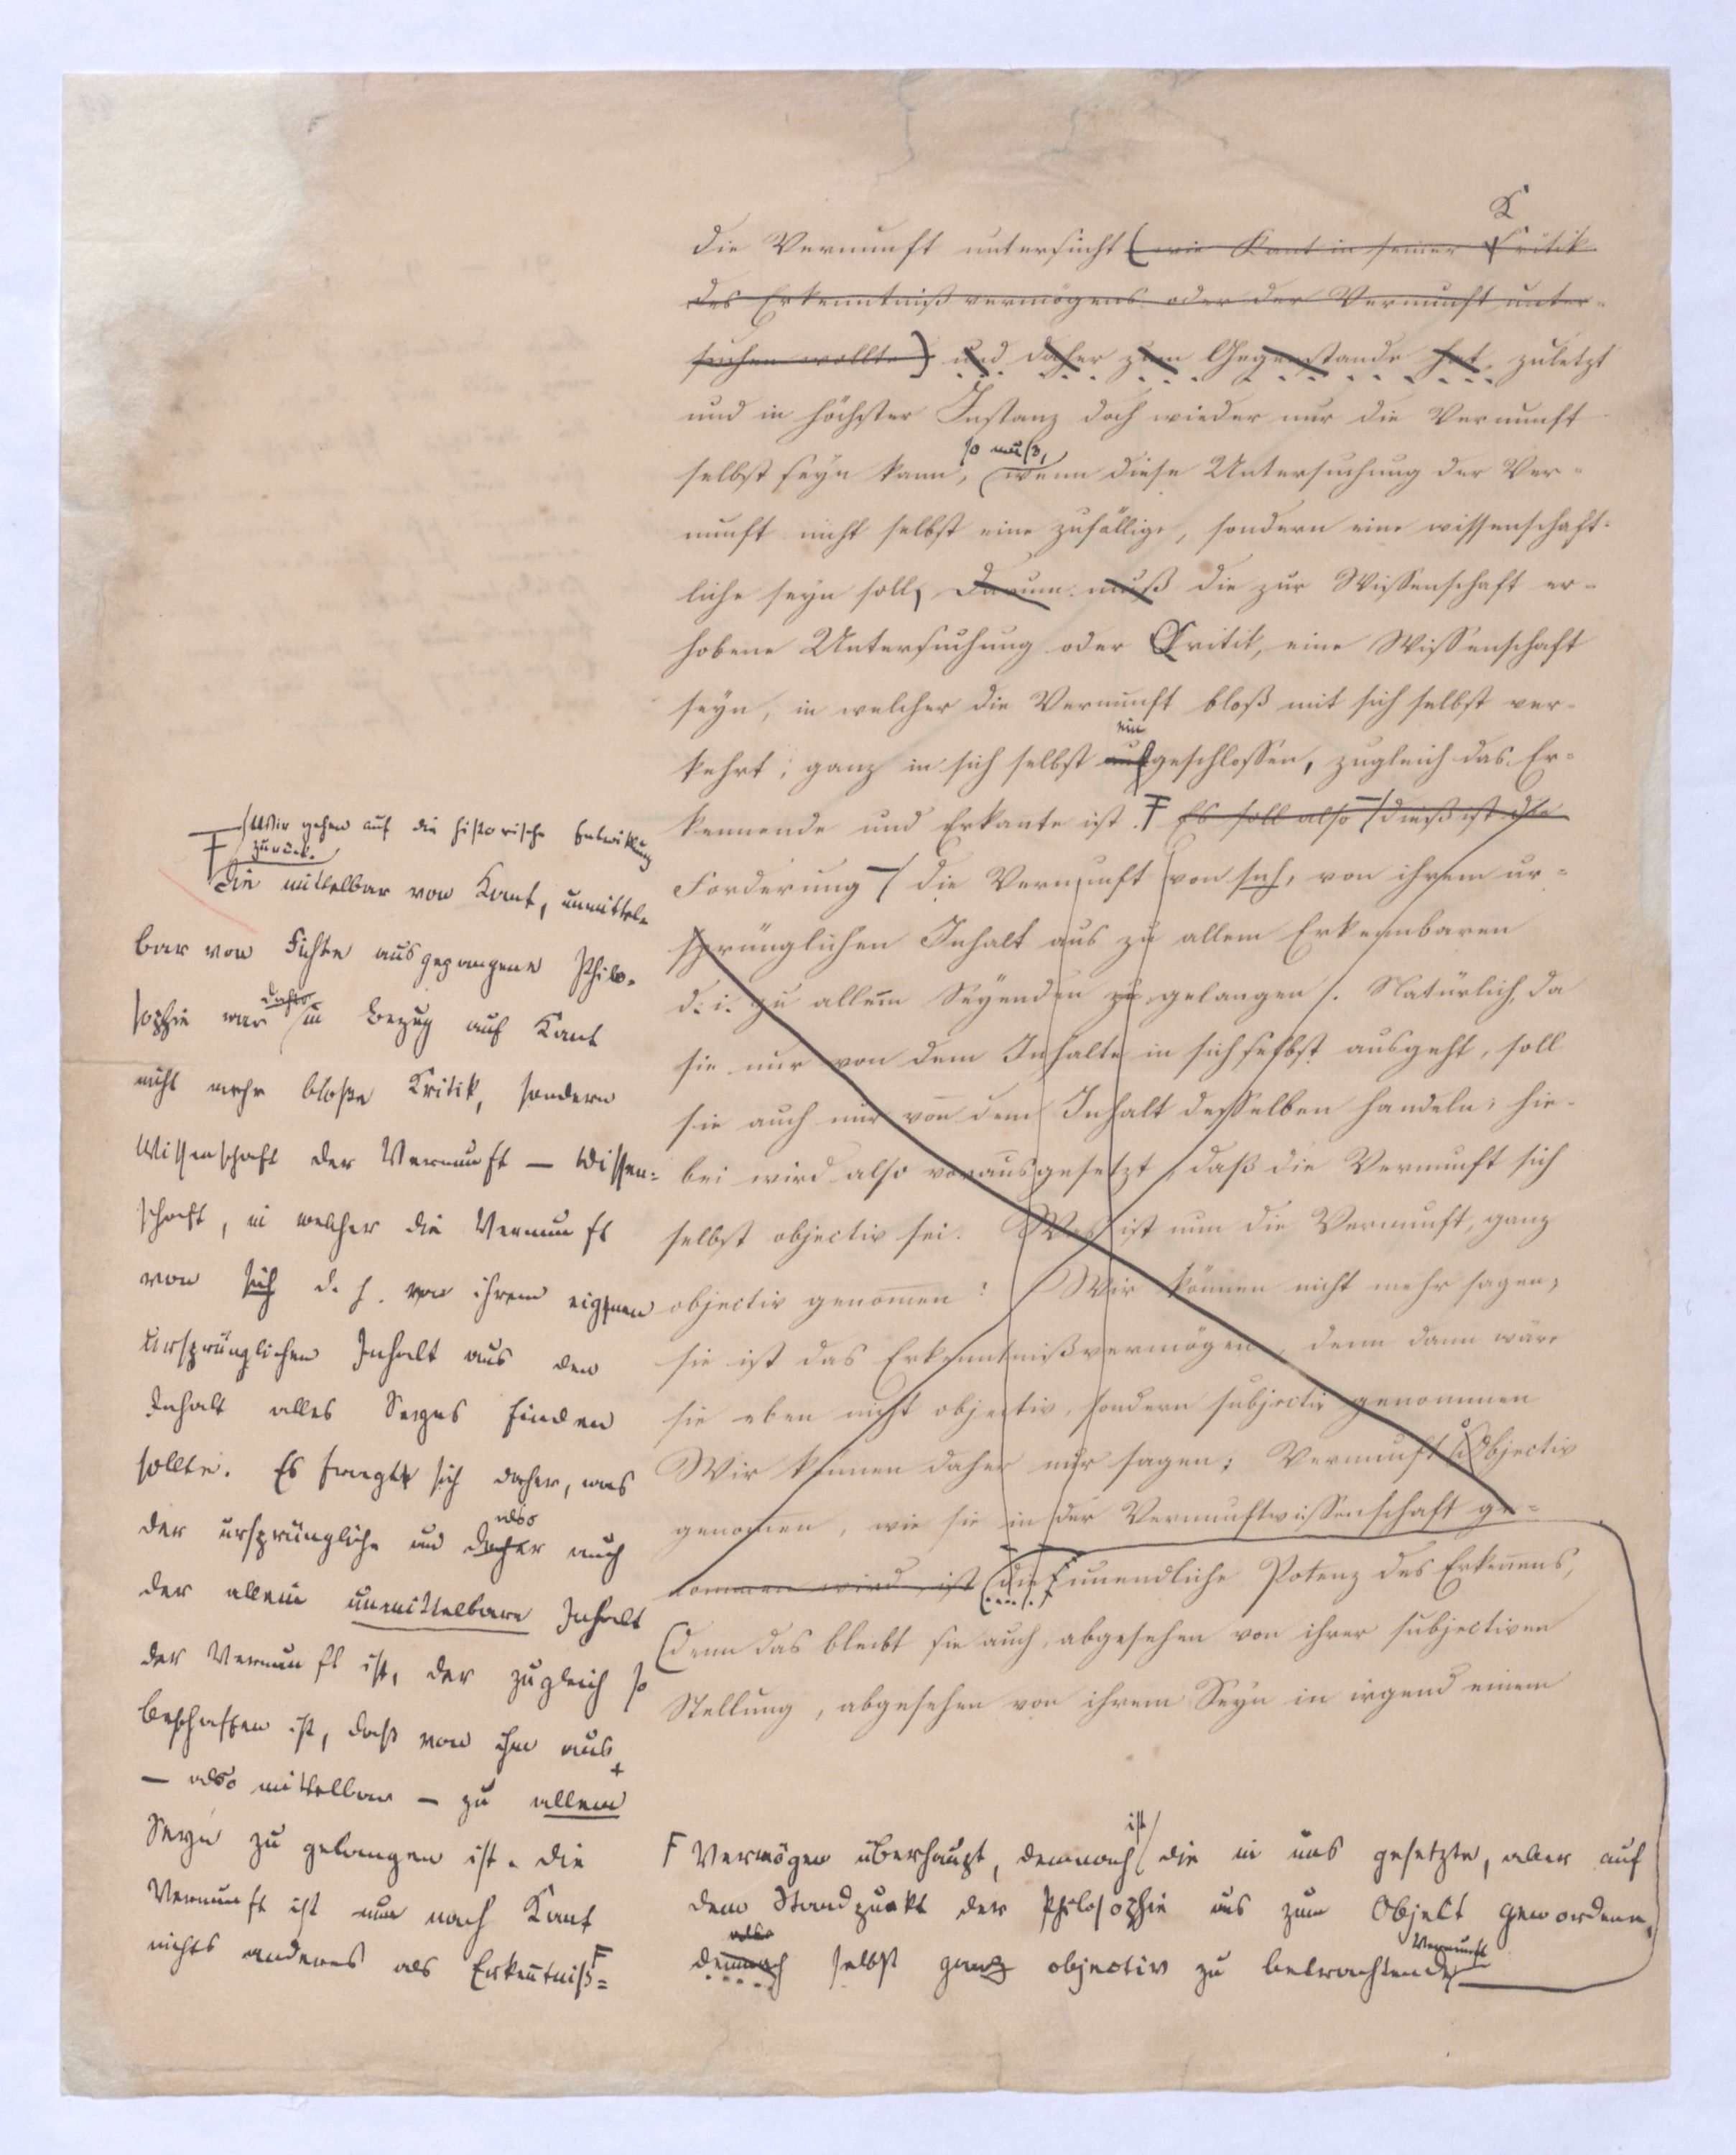 die Vernunft untersucht (wie Kant in seiner Kritik
des Erkenntnißvermögens oder der Vernunft unter-
suchen wollte) und daher zum Gegenstande hat, zuletzt
und in höchster Instanz doch wieder nur die Vernunft
so muß,
selbst seyn kann, wenn diese Untersuchung der Ver-
nunft nicht selbst eine zufällige, sondern eine wissenschaft-
liche seyn soll, Darum muß die zur Wissenschaft er-
hobene Untersuchung oder Kritik, eine Wissenschaft
seyn, in welcher die Vernunft bloß mit sich selbst ver-
ein
kehrt, ganz in sich selbst aufgeschlossen, zugleich das Er-
kennende und Erkante ist. F Es soll also – / dieß ist die
Forderung – / die Vernunft von sich, von ihrem ur-
sprünglichen Inhalt aus zu allem Erkennbaren
d. i. zu allem Seyenden zu gelangen. Natürlich, da
sie nur von dem Inhalte in sich selbst ausgeht, soll
sie auch nur von dem Inhalt desselben handeln; hie-
bei wird also vorausgesetzt, daß die Vernunft sich
selbst objectiv sei. Was ist nun die Vernunft, ganz
objectiv genomen? Wir können nicht mehr sagen,
sie ist das Erkenntnißvermögen, denn dann wäre
sie eben nicht objectiv, sondern subjectiv genommen
Wir können daher nur sagen: Vernunft objectiv
genomen, wie sie in der Vernunftwissenschaft ge-
nommen wird, ist die F unendliche Potenz des Erkenens,
(denn das bleibt sie auch, abgesehen von ihrer subjectiven
Stellung, abgesehen von ihrem Seyn in irgend einem
ist
F Vermögen überhaupt, demnach die in uns gesetzte, aber auf
dem Standpunkt der Philosophie uns zum Objekt gewordene,
also Vernunft
demnach selbst ganz objectiv zu betrachtende
Wir gehen auf die historische Entwicklung
zurück.
F Die mittelbar von Kant, unmittel-
bar von Fichte ausgegangene Philo-
daher
sophie war in Bezug auf Kant
nicht mehr bloße Kritik, sondern
Wissenschaft der Vernunft – Wissen-
schaft, in welcher die Vernunft
von sich d. h. von ihrem eigenen
ursprünglichen Inhalt aus den
Inhalt alles Seyns finden
sollte. Es fragte sich daher, was
also
der ursprüngliche und daher auch
der allein unmittelbare Inhalt
der Vernunft ist, der zugleich so
beschaffen ist, daß von ihm aus
– also mittelbar – zu allem
Seyn zu gelangen ist. Die
Vernunft ist nun nach Kant
nichts anderes als Erkentniß- F